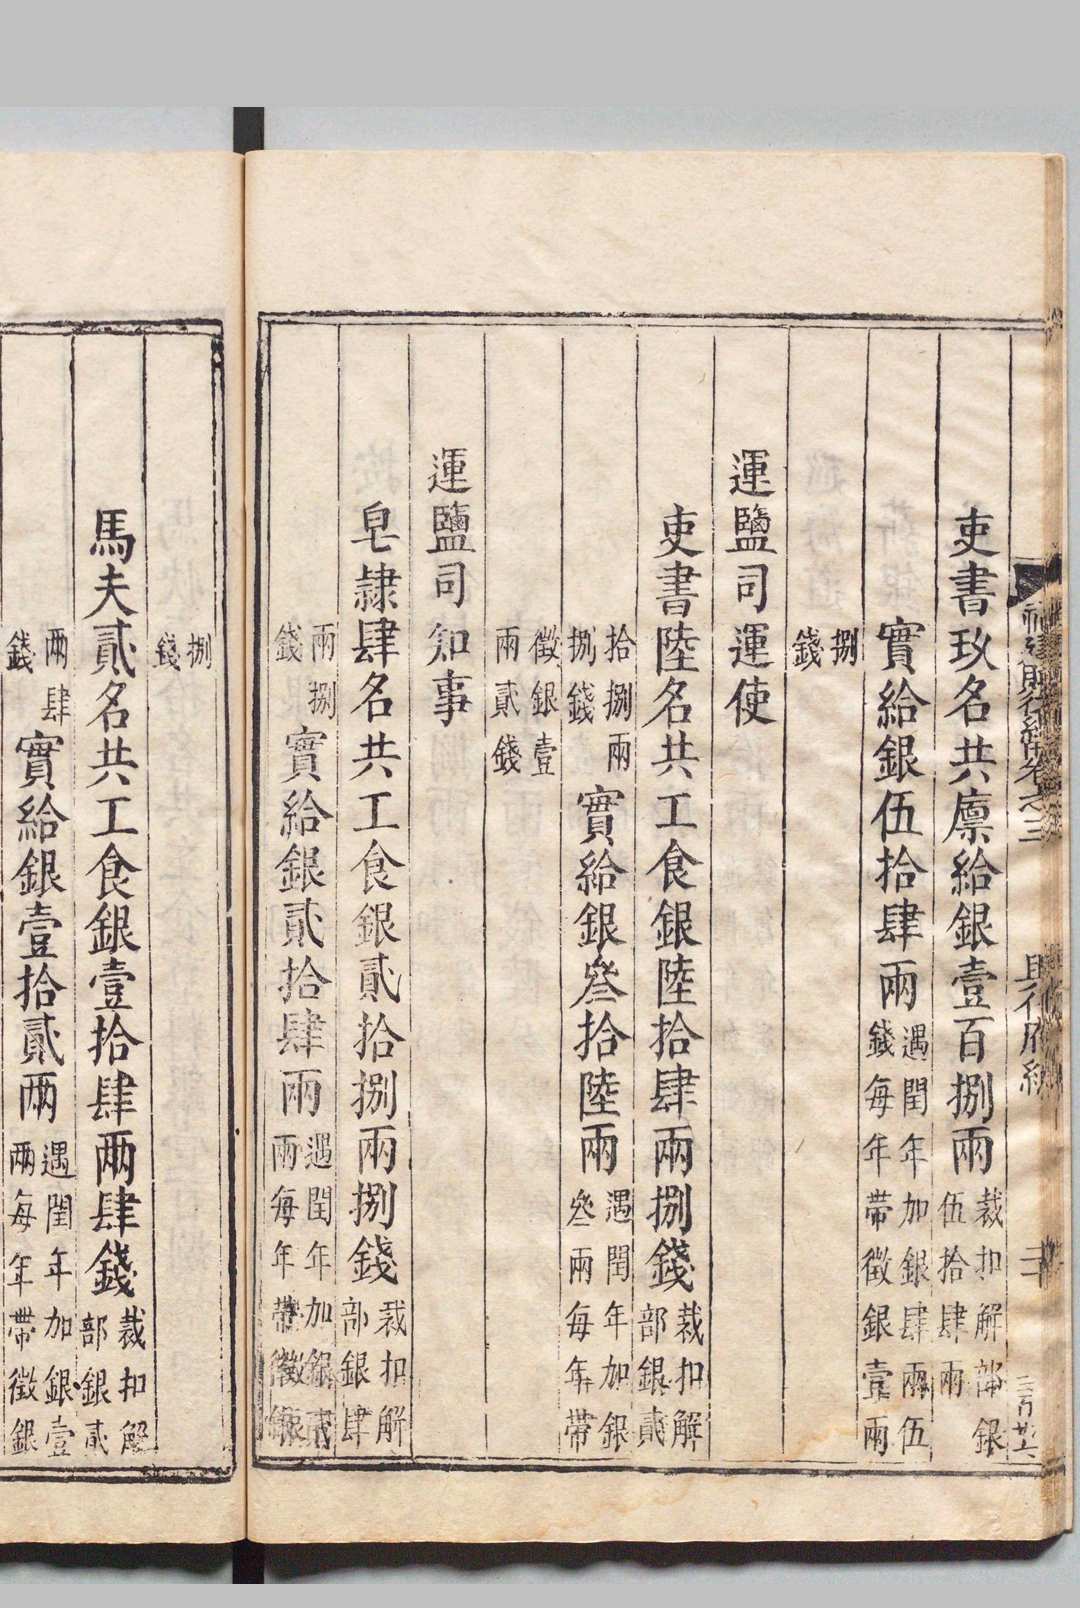 吏書玖名共廪給銀壹百捌兩
裁扣解部銀
伍拾肆兩
實給銀伍拾肆兩
遇閏年加銀肆兩伍
錢每年帶徵銀壹兩
捌
錢
運鹽司運使
吏書陸名共工食銀陸拾肆兩捌錢
裁扣解
部銀貳
拾捌兩
捌錢
實給銀叄拾陸兩
遇閏年加銀
叄兩每年帶
徵銀壹
兩貳錢
運鹽司知事
皂隸肆名共工食銀貳拾捌兩捌錢
裁扣解
部銀肆
兩捌
錢
實給銀貳拾肆兩
遇閏年加銀貳
兩每年帶徵銀
捌
錢
馬夫貳名共工食銀壹拾肆兩肆錢
裁扣解
部銀貳
兩肆
錢
實給銀壹拾貳兩
遇閏年加銀壹
兩每年帶徵銀